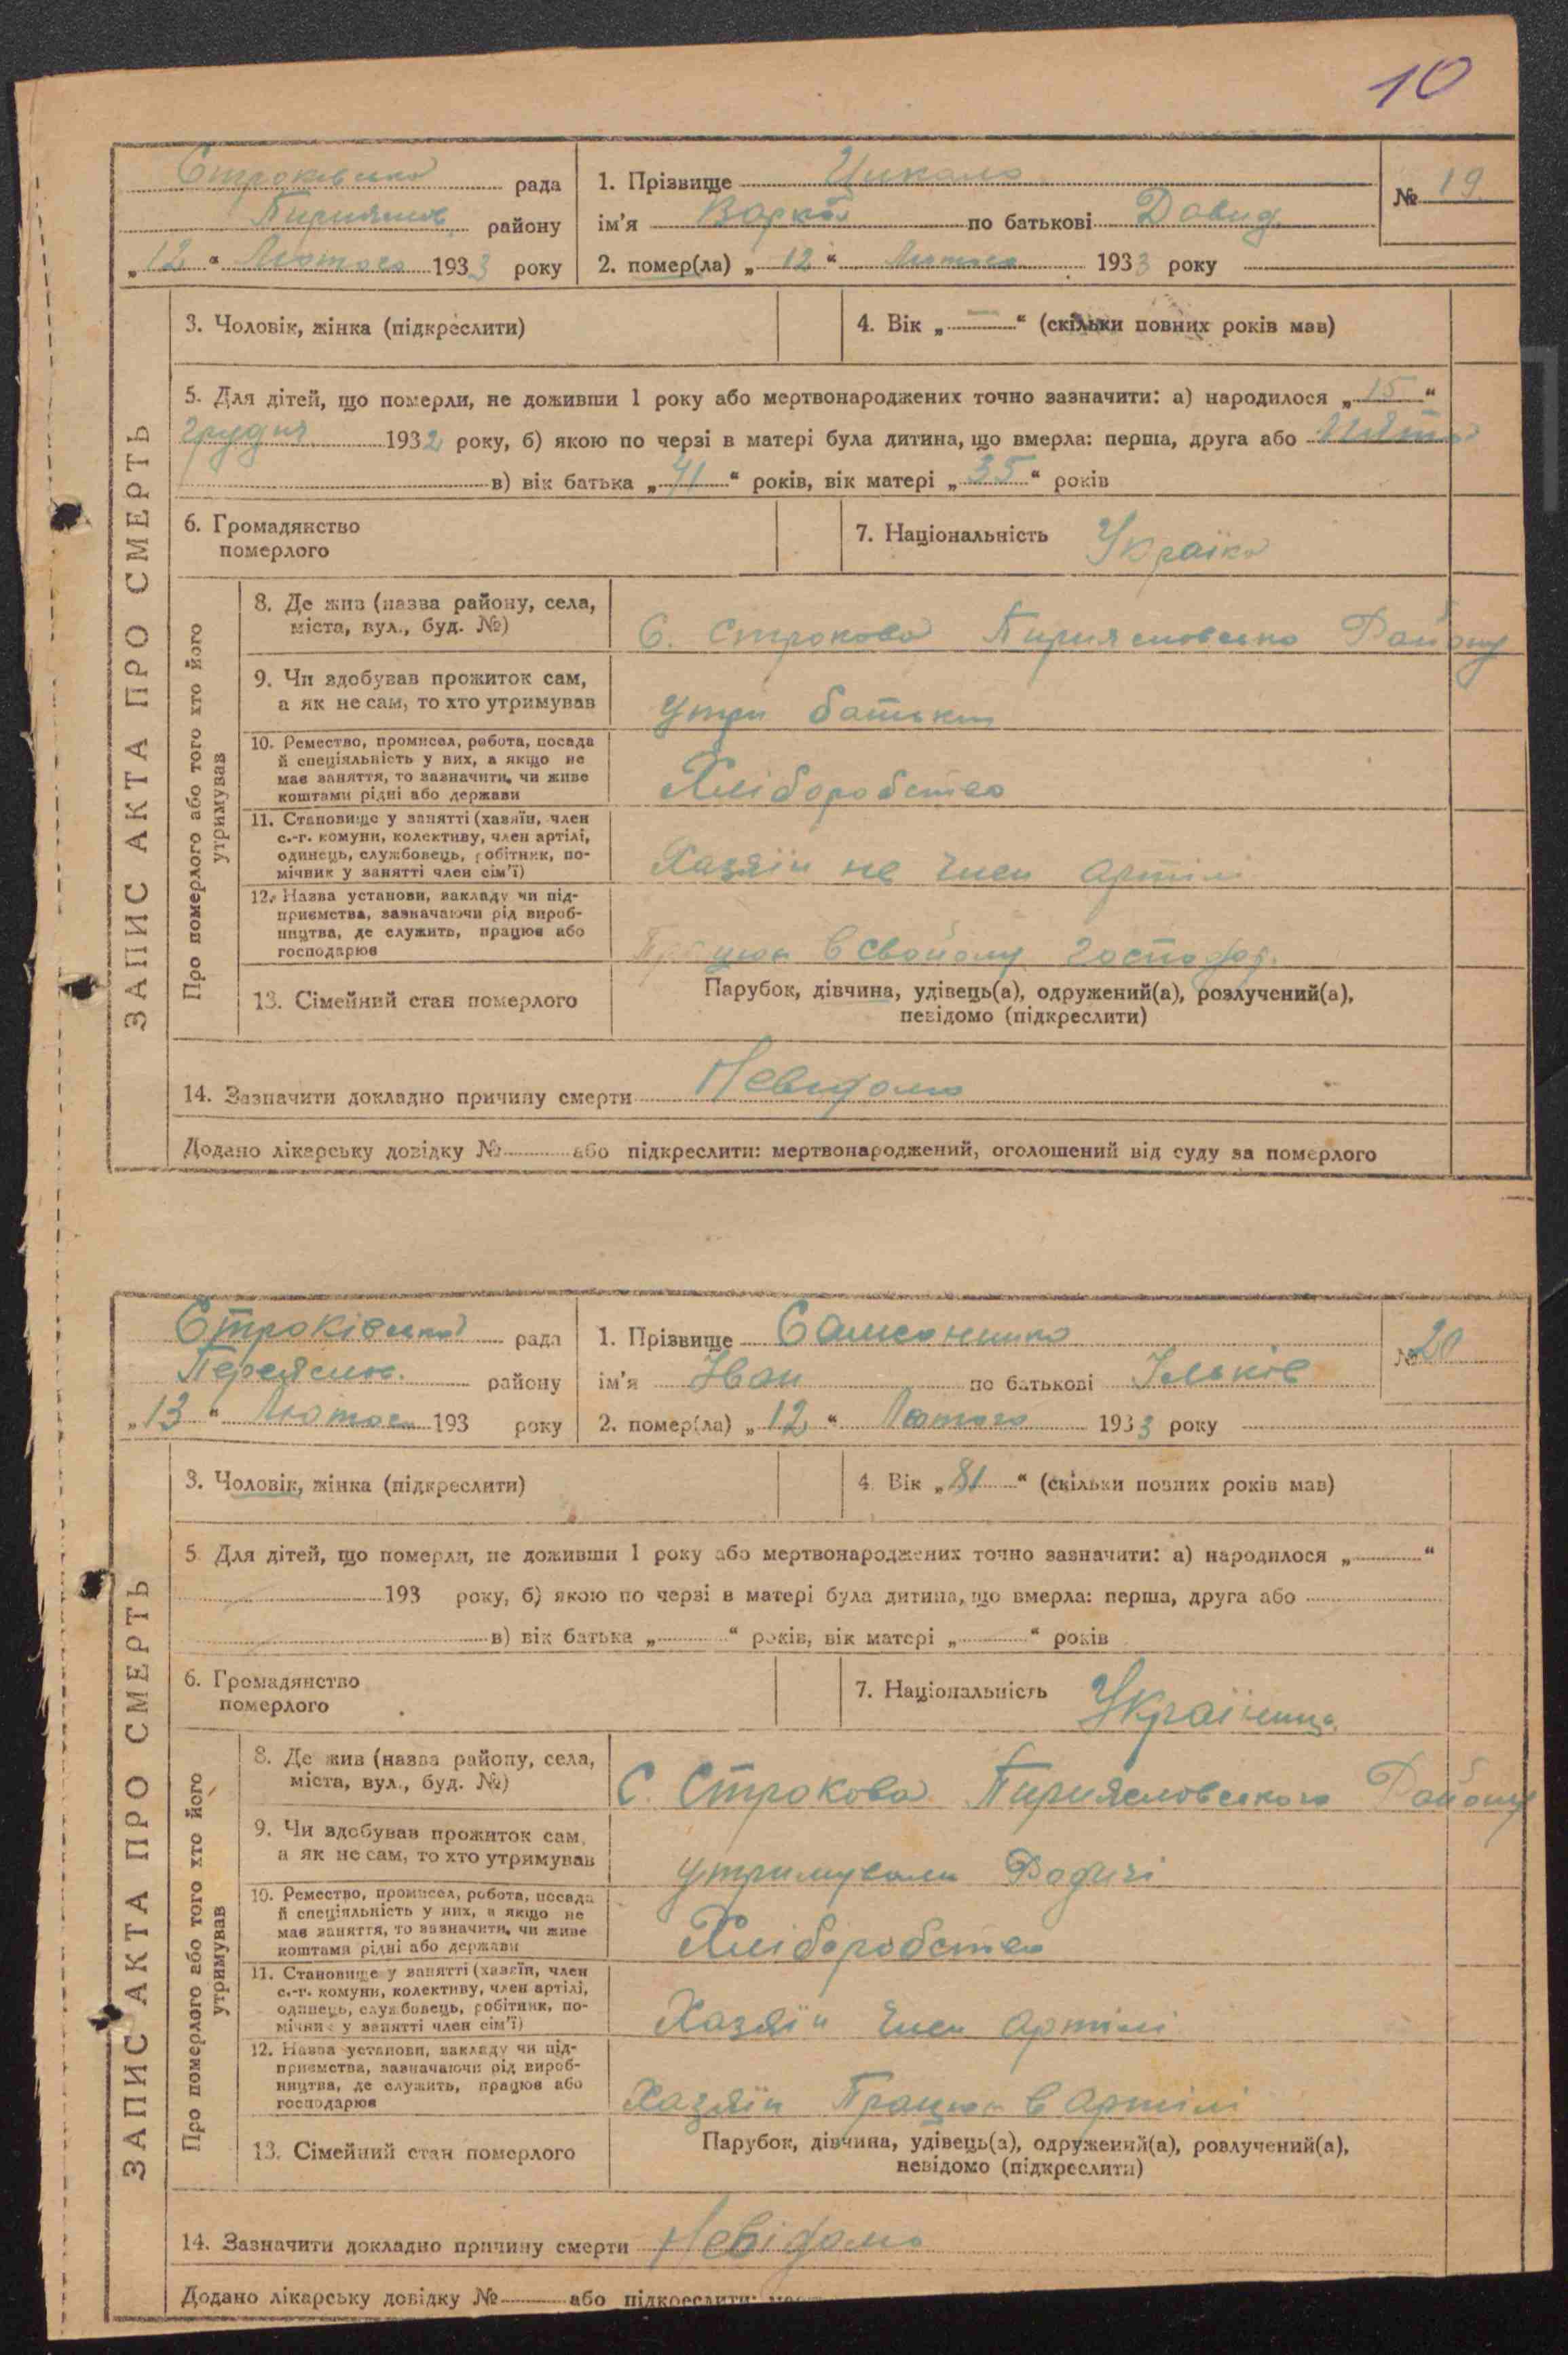 10
Строківська рада
Пириясл. району
„12“ Лютого 1933 року
1. Прізвище Цикало
ім'я Варка по батькові Давид
№ 19
2. помер(ла) „12“ Лютого 1933 року
ЗАПИС АКТА ПРО СМЕРТЬ
3. Чоловік, жінка (підкреслити)
4. Вік „—“ (скільки повних років мав)
5. Для дітей, що померли, не доживши 1 року або мертвонароджених точно зазначити: а) народилося „15“
Грудня 1932 року, б) якою по черзі в матері була дитина, що вмерла: перша, друга або
в) вік батька „41“ років, вік матері „35“ років
6. Громадянство
померлого
7. Національність Украіка
Про померлого або того хто його
утримував
8. Де жив (назва району, села,
міста, вул., буд. №)
С. Строкова Пириясловсько Району
9. Чи здобував прожиток сам,
а як не сам, то хто утримував
утри батьки
10. Ремество, промисел, робота, посада
й спеціяльність у них, а якщо не
має заняття, то зазначити, чи живе
коштами рідні або держави
Хліборобство
11. Становище у занятті (хазяїн, член
с.-г. комуни, колективу, член артілі,
одинець, службовець, робітник, по-
мічник у занятті член сім'ї)
Хазяїн не член артілі
12. Назва установи, закладу чи під-
приємства, зазначаючи рід вироб-
ництва, де служить, працює або
господарює
Працює в свойому господар.
13. Сімейний стан померлого
Парубок, дівчина, удівець(а), одружений(а), розлучений(а),
невідомо (підкреслити)
14. Зазначити докладно причину смерти Невидомо
Додано лікарську довідку № або підкреслити: мертвонароджений, оголошений від суду за померлого
Строківська рада
Переясл. району
„13“ Лютого 193 року
1. Прізвище
ім'я Іван по батькові Ільків
№ 20
2. помер(ла) „12“ Лютого 1933 року
ЗАПИС АКТА ПРО СМЕРТЬ
3. Чоловік, жінка (підкреслити)
4. Вік „81“ (скільки повних років мав)
5. Для дітей, що померли, не доживши 1 року або мертвонароджених точно зазначити: а) народилося „ “
193 року, б) якою по черзі в матері була дитина, що вмерла: перша, друга або
в) вік батька „ “ років, вік матері „ “ років
6. Громадянство
померлого
7. Національність Українець
Про померлого або того хто його
утримував
8. Де жив (назва району, села,
міста, вул., буд. №)
С. Строкова Пириясловського Району
9. Чи здобував прожиток сам,
а як не сам, то хто утримував
утримували Родичі
10. Ремество, промисел, робота, посада
й спеціяльність у них, а якщо не
має заняття, то зазначити, чи живе
коштами рідні або держави
Хліборобство
11. Становище у занятті (хазяїн, член
с.-г. комуни, колективу, член артілі,
одинець, службовець, робітник, по-
мічник у занятті член сім'ї)
Хазяїн член артілі
12. Назва установи, закладу чи під-
приємства, зазначаючи рід вироб-
ництва, де служить, працює або
господарює
Хазяїн Працює в артілі
13. Сімейний стан померлого
Парубок, дівчина, удівець(а), одружений(а), розлучений(а),
невідомо (підкреслити)
14. Зазначити докладно причину смерти Невідомо
Додано лікарську довідку № або підкреслити: